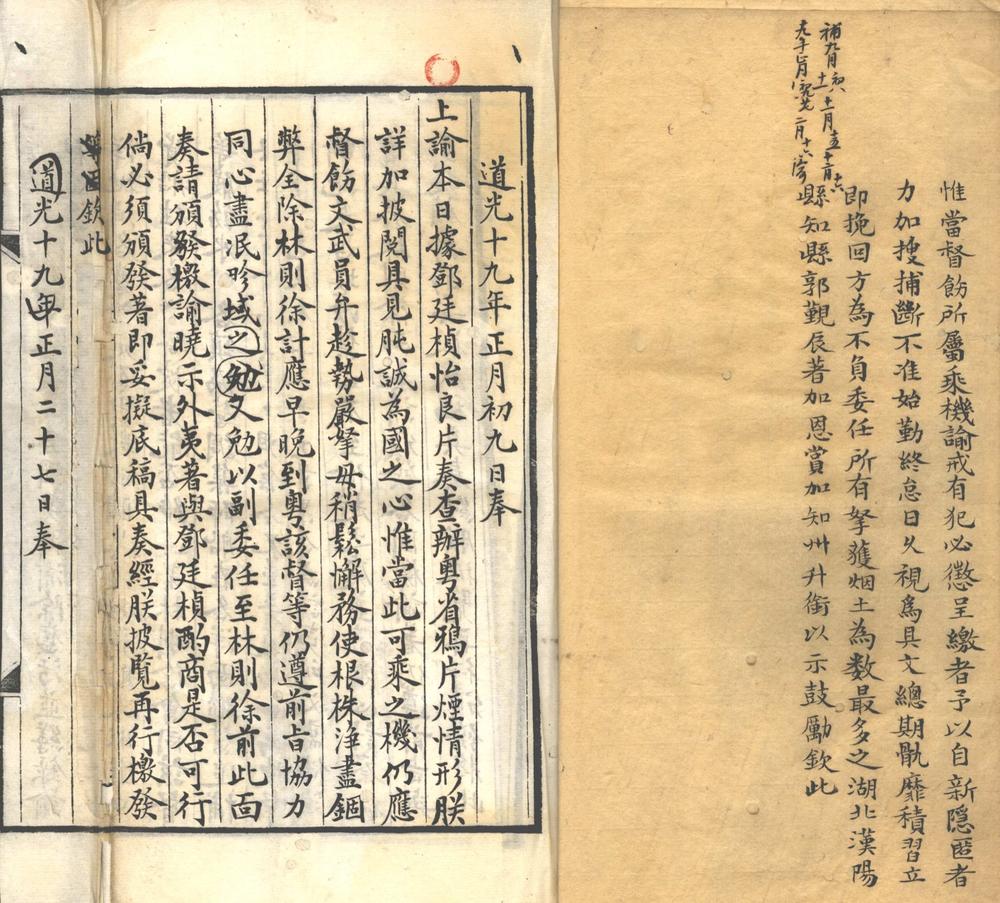 惟當督飭所屬乘機諭戒有犯必懲呈繳者予以自新隱匿者
力加搜捕斷不准始勤終怠日久視為具文總期骫靡積習立
即挽回方為不負委任所有拏獲烟土為數最多之湖北漢陽
縣知縣郭覲辰著加恩賞加知州升銜以示鼓勵欽此
道光十九年正月初九日奉
上諭本日據鄧廷楨怡良片奏查辦粵省鴉片煙情形朕
詳加披閱具見肫誠為國之心惟當此可乘之機仍應
督飭文武員弁趁勢嚴拏毋稍鬆懈務使根株淨盡錮
弊全除林則徐計應早晚到粵該督等仍遵前旨協力
同心盡泯畛域之勉又勉以副委任至林則徐前此面
奏請頒發檄諭曉示外夷著與鄧廷楨酌商是否可行
倘必須頒發著即妥擬底稿具奏經朕披覽再行檄發
欽此
道光十九年正月二十七日奉